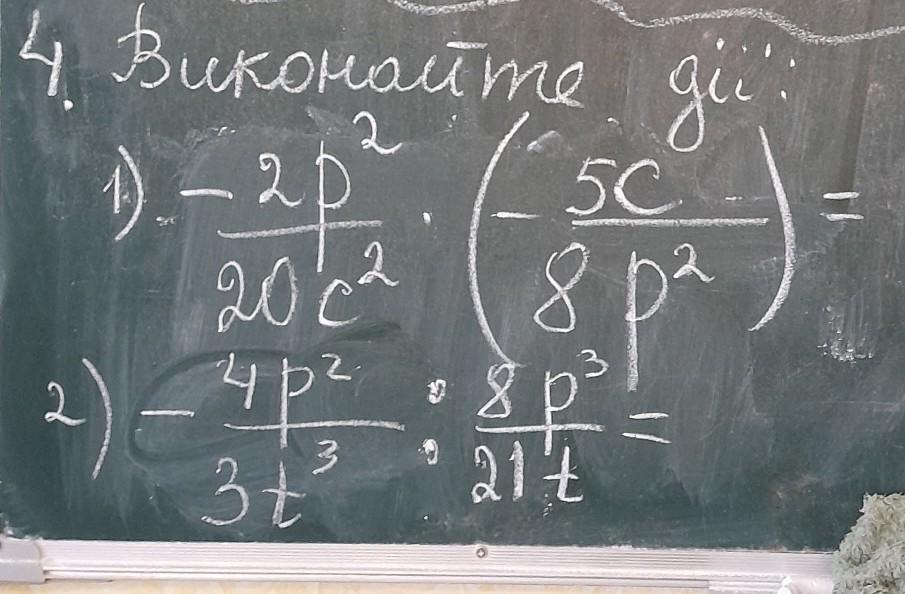 4. Виконайте дії:
1) - 2p² / 20c² · (- 5c / 8p²) =
2) - 4p² / 3t³ : 8p³ / 21t =